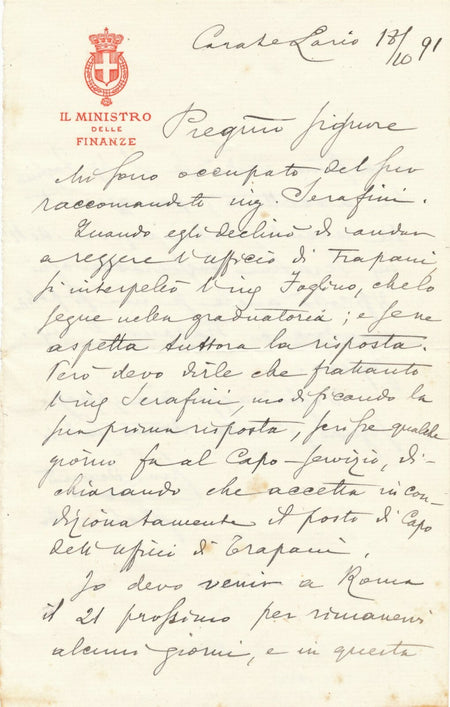 Carate Lario 18/10 91
IL MINISTRO
DELLE
FINANZE
Pregmo Signore
Mi sono occupato del suo
raccomandato ing. Serafini.
Quando egli declinò di andar
a reggere l'ufficio di Trapani,
si interpellò l'ing Foglino, che lo
segue nella graduatoria; e se ne
aspetta tuttora la risposta.
Però devo dirle che frattanto
l'ing Serafini, modificando la
sua prima risposta, scrisse qualche
giorno fa al Capo-servizio, di-
chiarando che accetta incon-
dizionatamente il posto di Capo
dell'uffici di Trapani.
Io devo venir a Roma
il 21 prossimo per rimanervi
alcuni giorni, e in questa